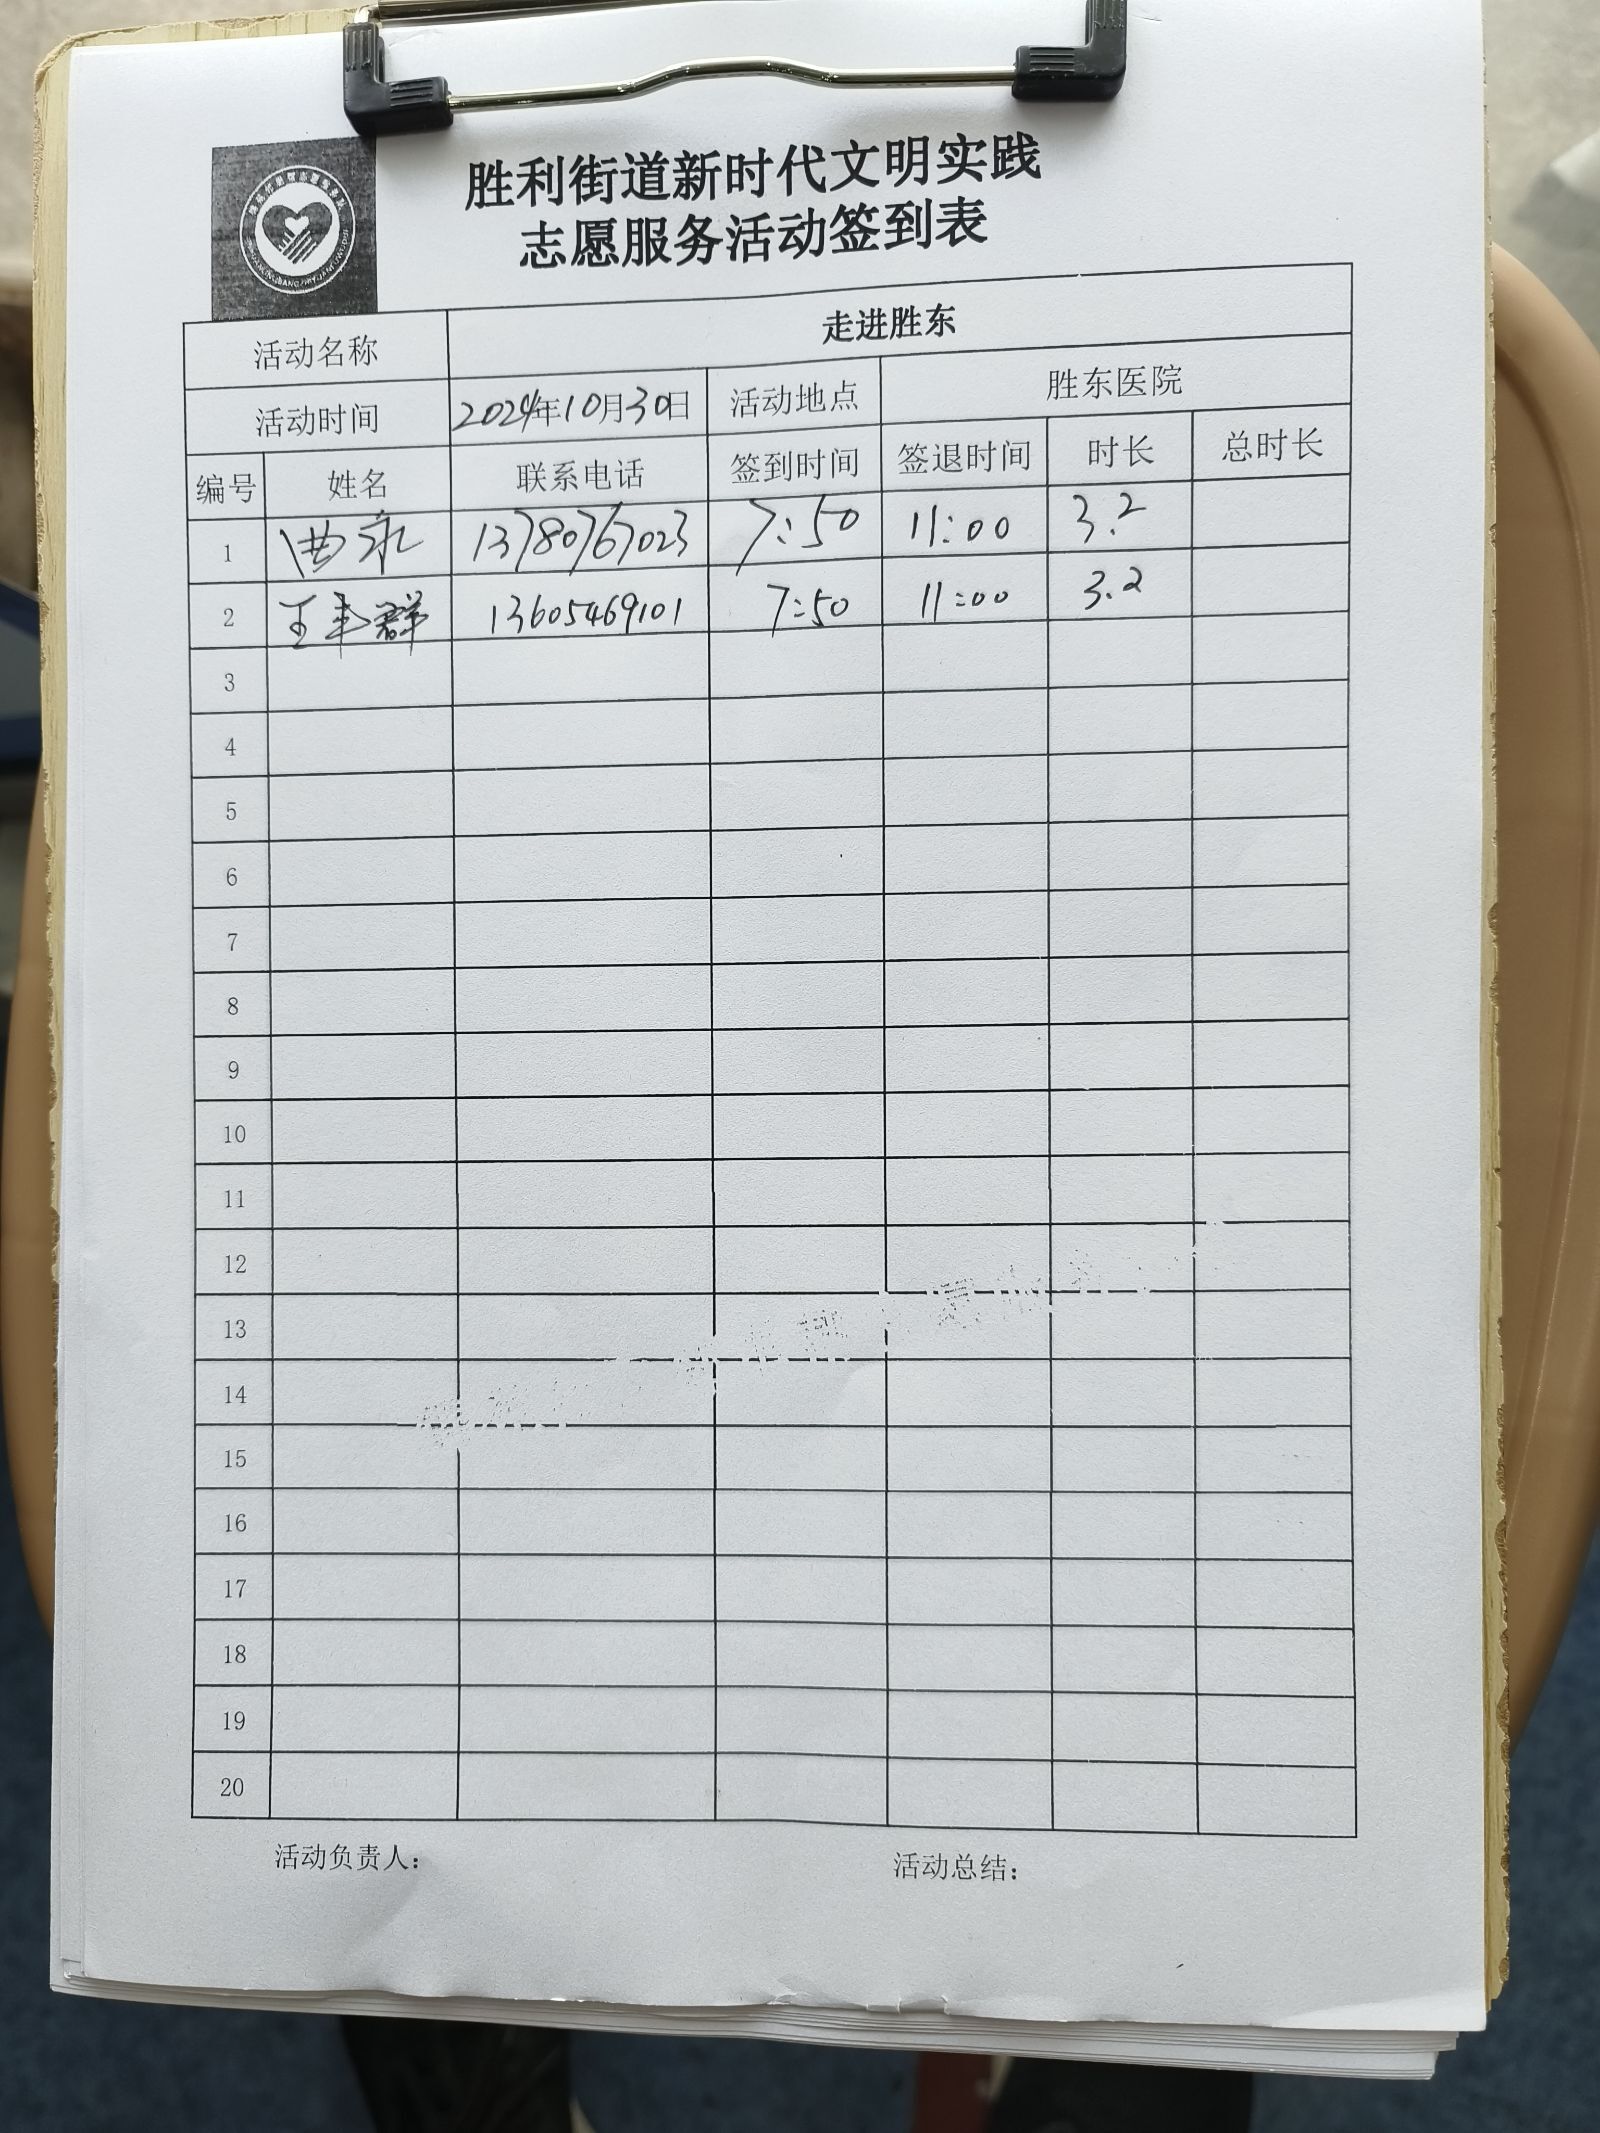 胜利街道新时代文明实践
志愿服务活动签到表
活动名称 走进胜东
活动时间 2024年10月30日 活动地点 胜东医院
编号 姓名 联系电话 签到时间 签退时间 时长 总时长
1 曲永 13780767023 7:50 11:00 3.2
2 王丰群 13605469101 7:50 11:00 3.2
3
4
5
6
7
8
9
10
11
12
13
14
15
16
17
18
19
20
活动负责人： 活动总结：